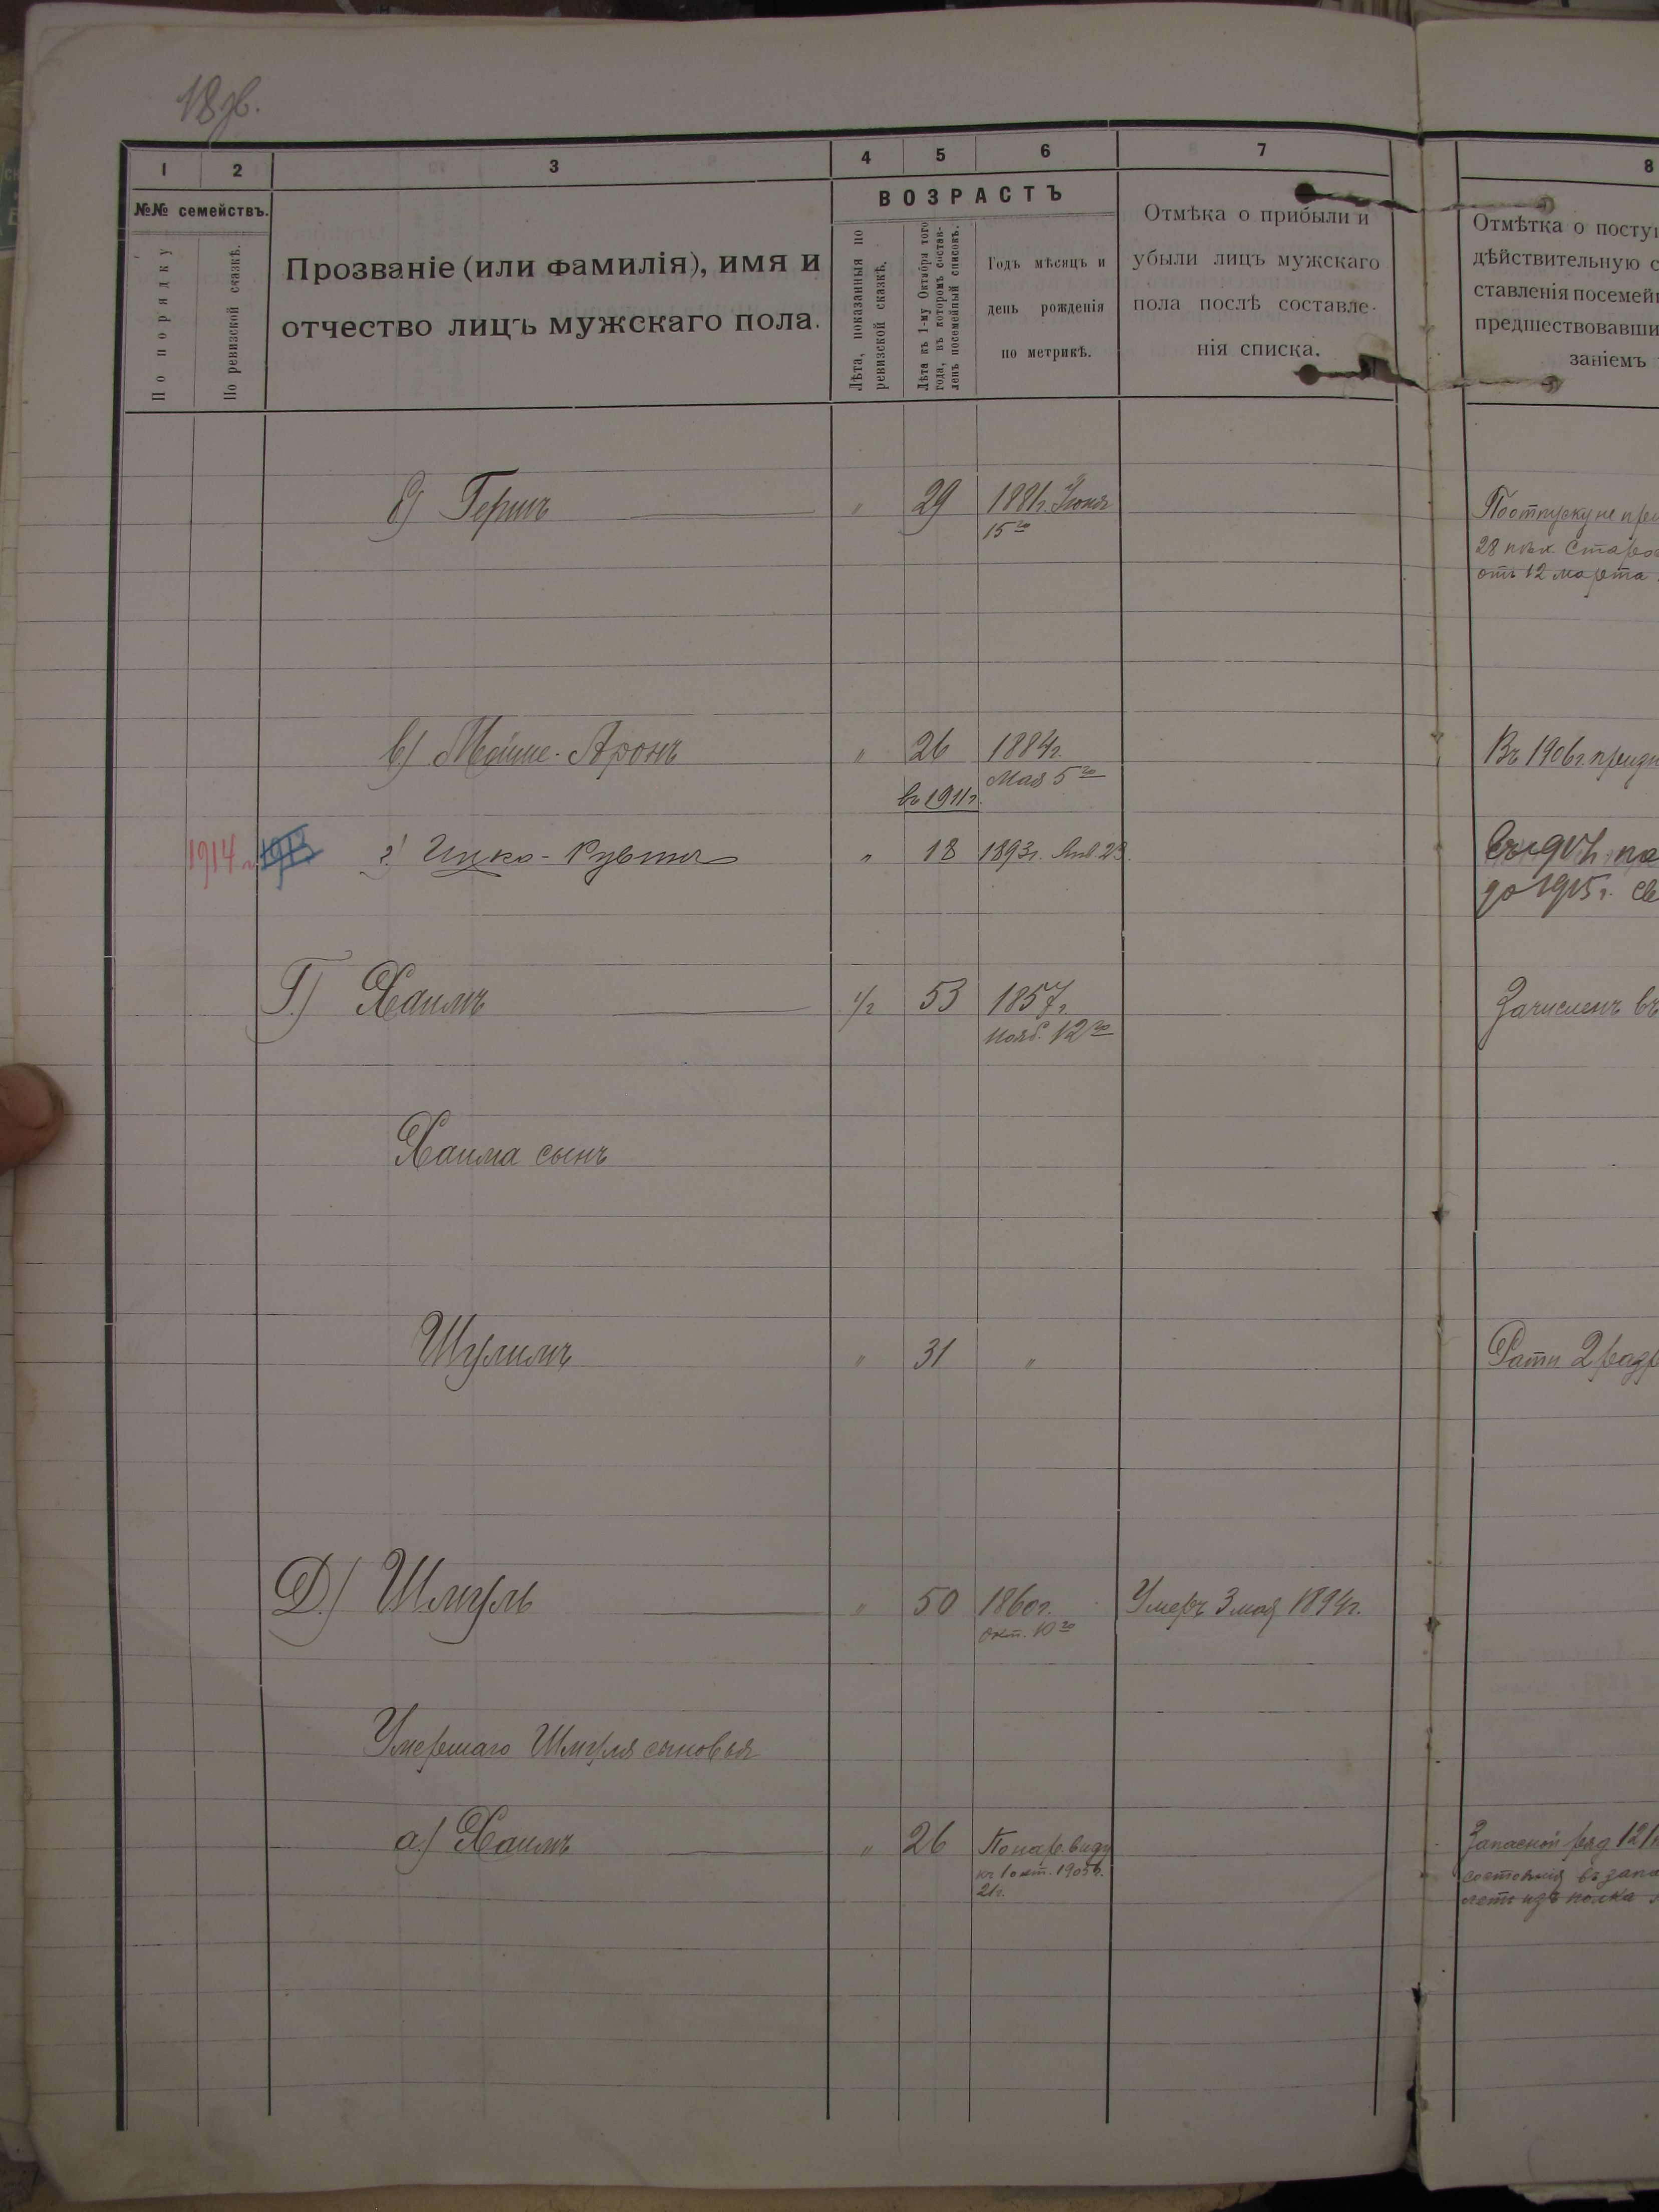 18об.
1 2 3 4 5 6 7 8
№№ семействъ.
По порядку
По ревизской сказкѣ.
Прозваніе (или фамилія), имя и
отчество лицъ мужскаго пола.
ВОЗРАСТЪ
Лѣта, показанныя по
ревизской сказкѣ.
Лѣта къ 1-му Октября того
года, въ которомъ состав-
ленъ посемейный списокъ.
Годъ мѣсяцъ и
день рожденія
по метрикѣ.
Отмѣка о прибыли и
убыли лицъ мужскаго
пола послѣ составле-
нія списка.
Отмѣтка о посту
дѣйствительную с
ставленія посемей
предшествовавши
заніемъ
б) Гершъ " 29 1881г. Іюня
15го
28 пѣх. Старо
отъ 12 марта
в) Мойше-Аронъ " 26 1884г. Въ 1906г. призн
Мая 5го
въ 1911г.
1914 г. 1913 г) Ицко-Рувинъ " 18 1893г. Янв. 23.
до 1915г. св
Г.) Хаимъ 1/2 53 1857г. Зачисленъ въ
Нояб. 12го
Хаима сынъ
Шулимъ " 31 " Ратн. 2 разр
Д.) Шмуль " 50 1860г. Умеръ 3 мая 1894г.
Окт. 10го
Умершаго Шмуля сыновья
а.) Хаимъ " 26 По нар. виду Запасной ряд. 121
къ 1 окт. 1905г. состоянія въ запа
21г. лѣтъ изъ полка